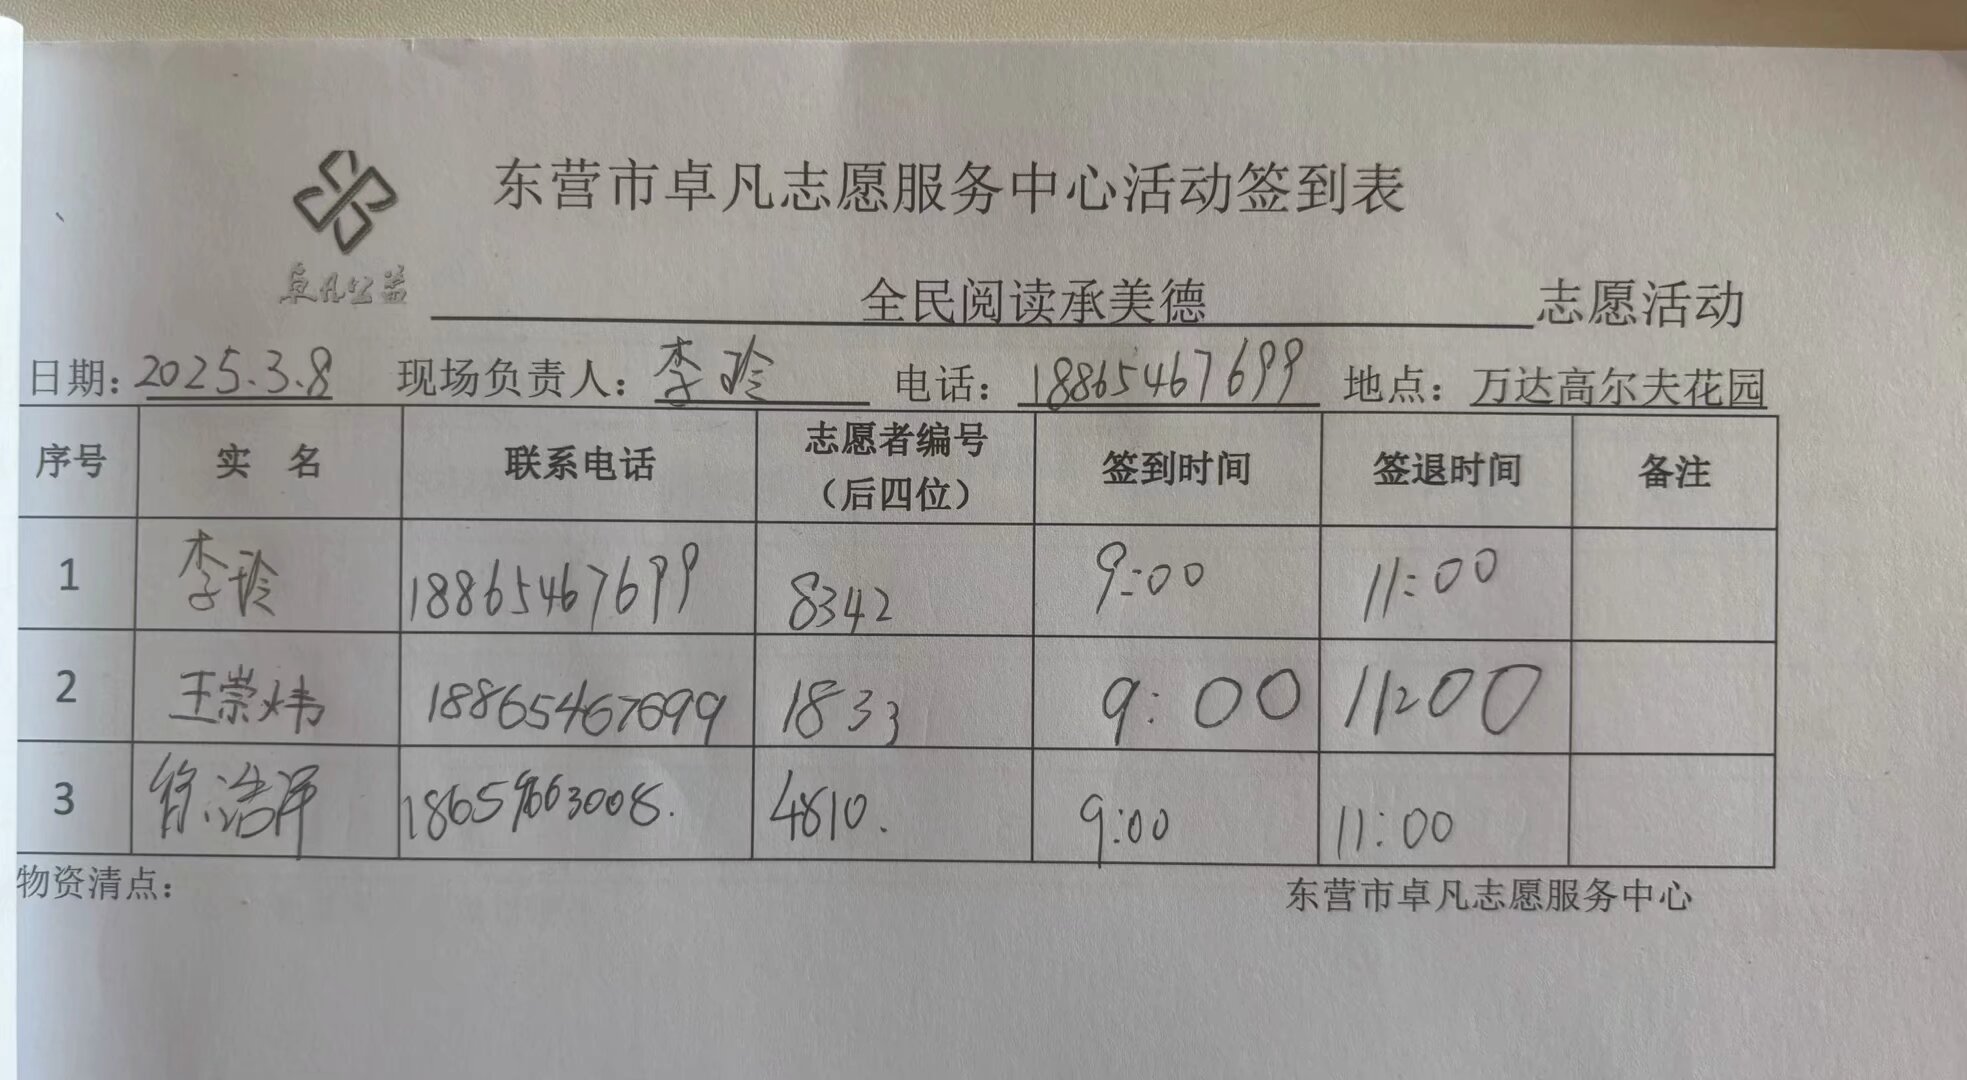 东营市卓凡志愿服务中心活动签到表
卓凡公益
全民阅读承美德 志愿活动
日期：2025.3.8 现场负责人：李玲 电话：18865467699 地点：万达高尔夫花园
序号 实 名 联系电话 志愿者编号（后四位） 签到时间 签退时间 备注
1 李玲 18865467699 8342 9:00 11:00
2 王崇炜 18865467699 1833 9:00 11:00
3 徐浩洋 4810. 9:00 11:00
物资清点： 东营市卓凡志愿服务中心